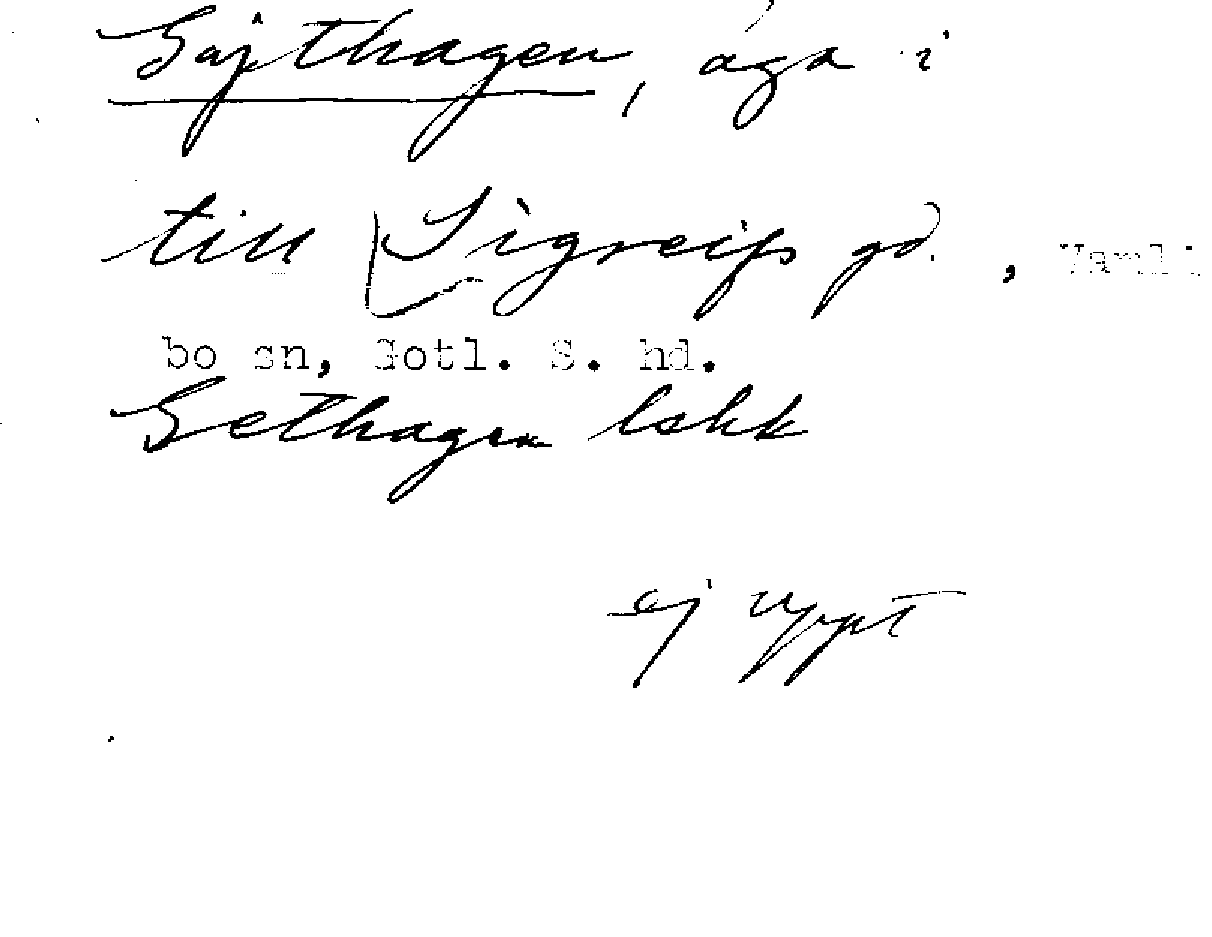 Gajthagen, äga i
till Sigreifs gd., Vamli
bo sn, Gotl. S. hd.
Gethagen lshk
ej uppt